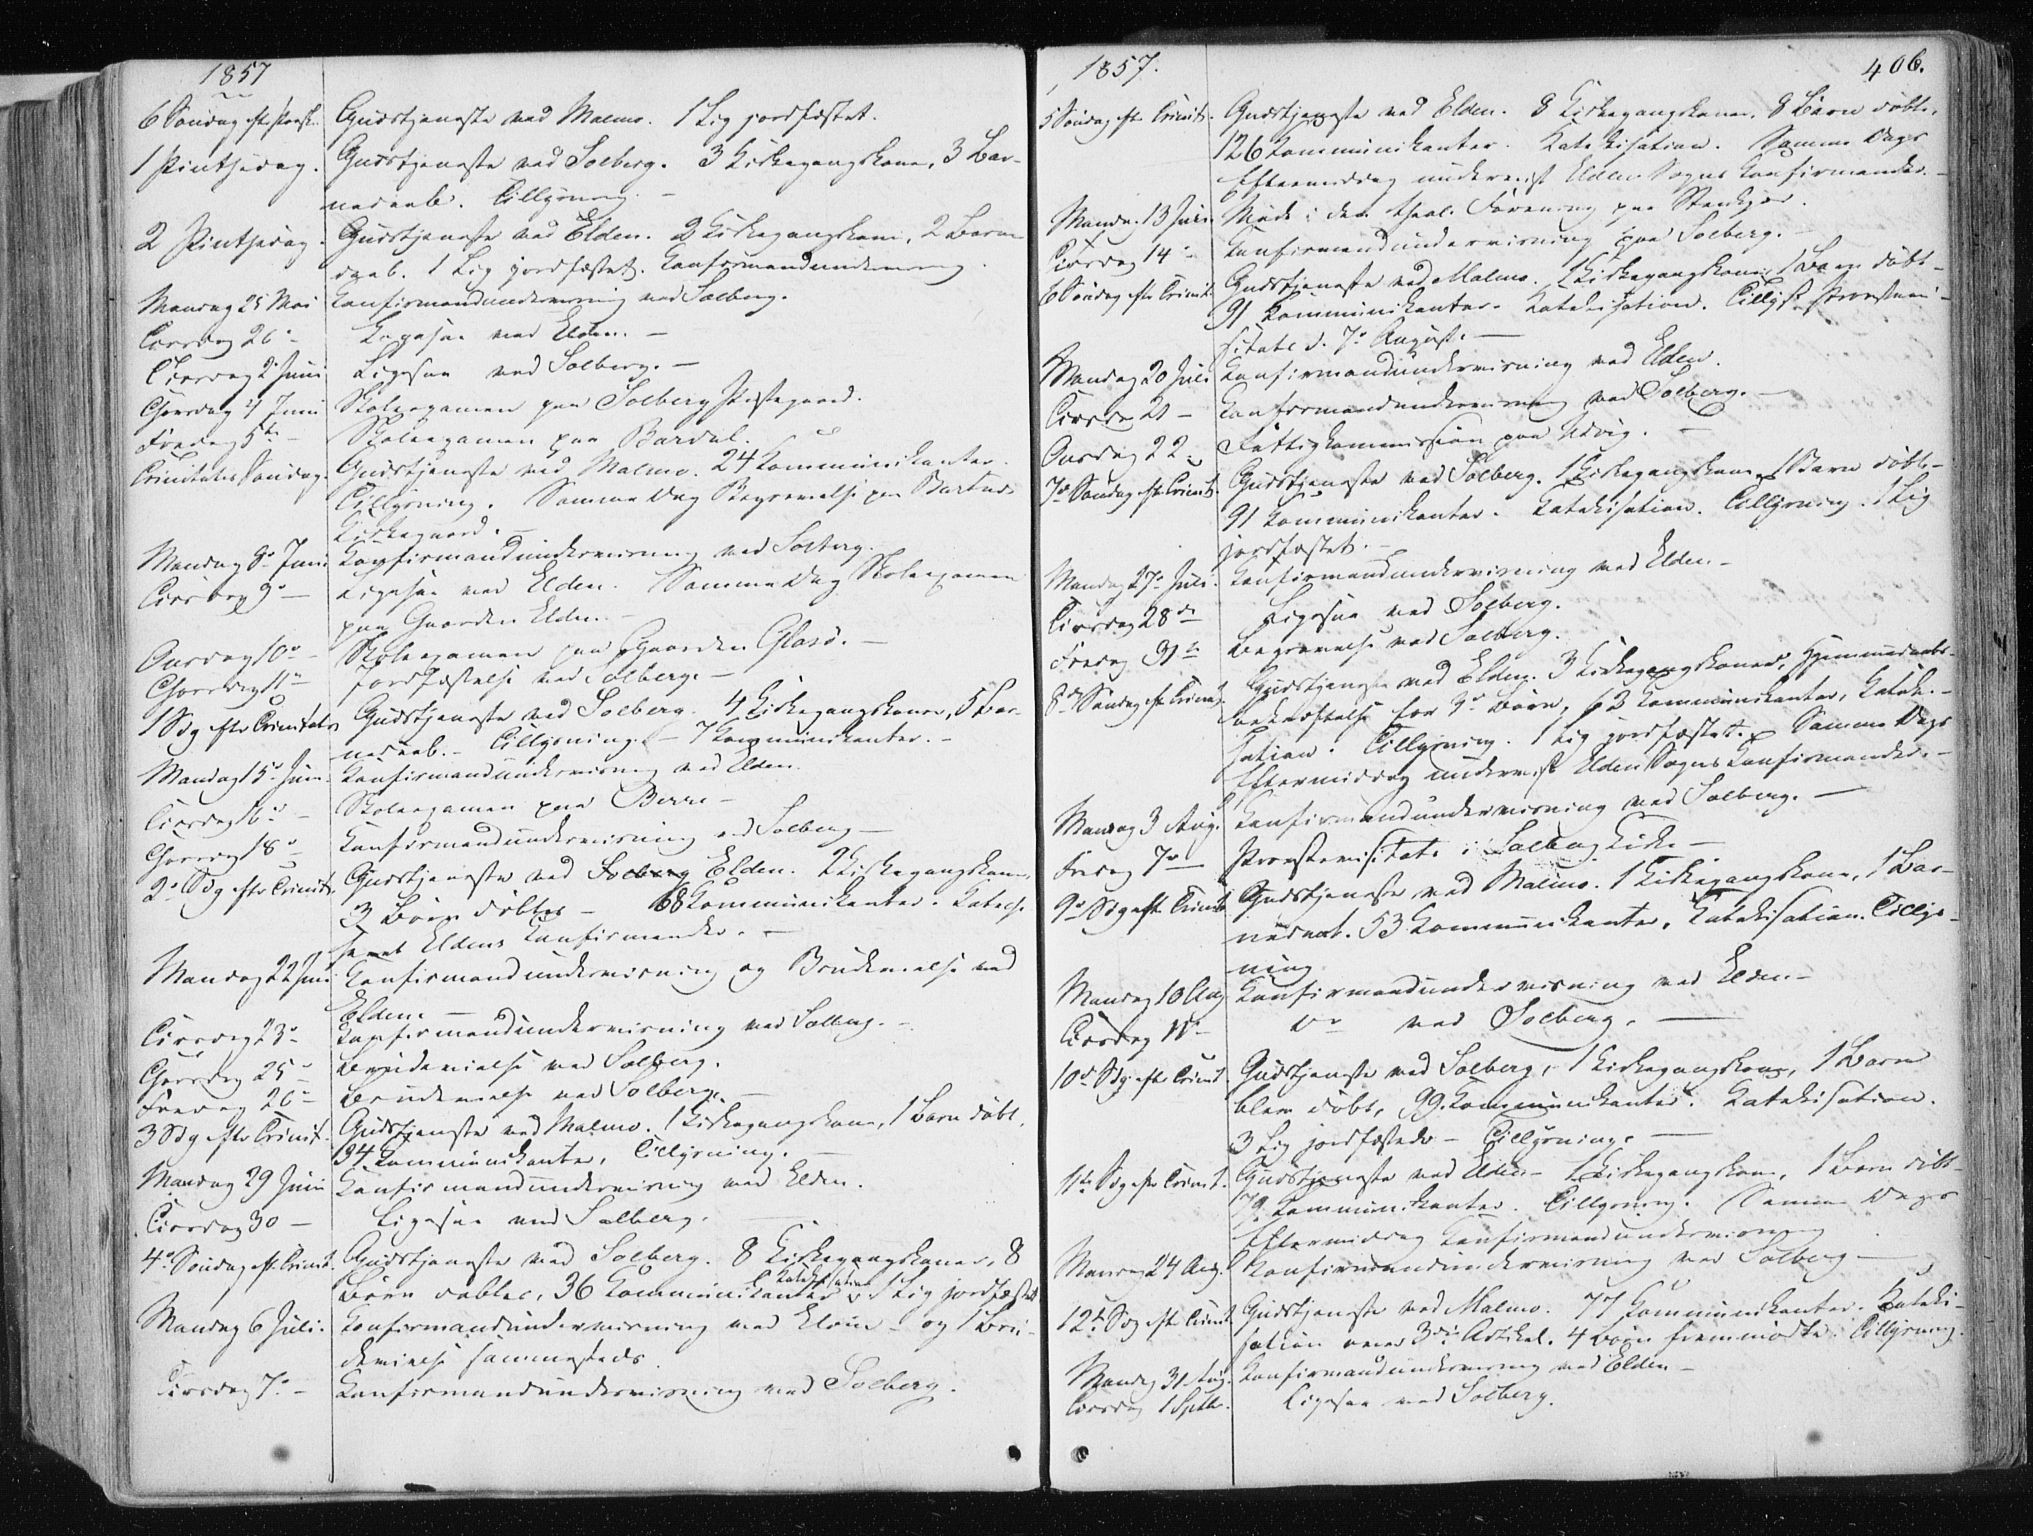 1857
6 Søndag eft. Paaske. Gudstjeneste ved Malmo. 1 Lig jordfæstet.
1 Pintsedag. Gudstjeneste ved Solberg. 3 Kirkegangskoner, 3 Bar-
nedaab. Tillysning. —
2 Pintsedag. Gudstjeneste ved Elden. 2 Kirkegangskoner, 2 Barne-
daab. 1 Lig jordfæstet. Confirmandundervisning.
Mandag 25 Mai Confirmandundervisning ved Solberg.
Tirsdag 26 - Ligesaa ved Elden. —
Tirsdag 2 Juni Ligesaa ved Solberg. —
Thorsdag 4 Juni Skoleexamen paa Solberg Præstegaard.
Fredag 5te - Skoleexamen paa Bardal.
Trinitatis Søndag. Gudstjeneste ved Malmo. 24 Kommunikanter.
Tillysning. Samme Dag Begravelse paa
Kirkegaard. —
Mandag 8 Juni Konfirmandundervisning ved Solberg.
Tirsdag 9 - Ligesaa ved Elden. Samme Dag Skoleexamen
paa Gaarden Elden. —
Onsdag 10 - Skoleexamen paa Gaarden Glasø. —
Thorsdag 11 - Jordfæstelse ved Solberg. —
1 Sdg efter Trinitatis Gudstjeneste ved Solberg. 4 Kirkegangskoner, 5 Bar-
nedaab. - Tillysning. - 7 Kommunikanter. -
Mandag 15 Juni Konfirmandundervisning ved Elden.
Tirsdag 16 - Skoleexamen paa Berre -
Thorsdag 18 - Konfirmandundervisning ved Solberg —
2 Sdg efter Trinitatis Gudstjeneste ved Solberg Elden. 2 Kirkegangskoner,
3 Børn døbtes - 68 Kommunikanter. Katech.
samt Eldens Konfirmander. —
Mandag 22 Juni Konfirmandundervisning og Brudevielse ved
Elden. —
Tirsdag 23 - Konfirmandundervisning ved Solberg. -
Thorsdag 25 - Brudevielse ved Solberg.
Fredag 26 - Brudevielse ved Solberg. —
3 Sdg efter Trinit. Gudstjeneste ved Malmo. 1 Kirkegangskone, 1 Barn døbt,
34 Kommunikanter, Tillysning. —
Mandag 29 Juni Konfirmandundervisning ved Elden.
Tirsdag 30 — Ligesaa ved Solberg. —
4 Søndag eft. Trinit. Gudstjeneste ved Solberg. 8 Kirkegangskoner, 8
Børn døbtes, 36 Kommunikanter, Katekisation 1 Lig jordfæstet
Mandag 6 Juli. Konfirmandundervisning ved Elden - og 1 Bru-
devielse sammesteds.
Tirsdag 7 - Konfirmandundervisning ved Solberg.
1857. 406.
5 Søndag eft. Trinit. Gudstjeneste ved Elden. 8 Kirkegangskoner, 8 Børn døbte,
126 Kommunikanter. Katekisation. Samme Dags
Eftermiddag underviist Elden Sogns Konfirmander. -
Mandag 13 Juli. Møde i den theol. Forening paa Steenkjær.
Tirsdag 14 - Konfirmandundervisning paa Solberg. -
6 Søndag eft. Trinit. Gudstjeneste ved Malmo. 1 Kirkegangskone, 1 Barn døbt -
91 Kommunikanter. Katekisation. Tillyst Provstevi-
sitats d. 7 August. —
Mandag 20 Juli Konfirmandundervisning ved Elden.
Tirsdag 21 — Konfirmandundervisning ved Solberg. —
Onsdag 22 - Fattigkommission paa Udvig. —
7 Søndag eft. Trinit. Gudstjeneste ved Solberg. 1 Kirkegangskone, 1 Barn døbt -
91 Kommunikanter. Katekisation. Tillysning. 1 Lig
jordfæstet. -
Mandag 27 Juli. Konfirmandundervisning ved Elden. -
Tirsdag 28de Ligesaa ved Solberg.
Fredag 31te Begravelse ved Solberg.
8de Søndag eft. Trinit. Gudstjeneste ved Elden. 3 Kirkegangskoner, Hjemmedaabs-
bekræftelse for 3 Børn, 62 Kommunikanter, Kateki-
sation. Tillysning. 1 Lig jordfæstet. Samme Dags
Eftermiddag underviist Elden Sogns Konfirmander. -
Mandag 3 Aug. Konfirmandundervisning ved Solberg. —
Fredag 7 — Provstevisitats i Solberg Kirke —
9 Sdg eft. Trinit. Gudstjeneste ved Malmo. 1 Kirkegangskone, 1 Bar-
nedaab. 53 Kommunikanter, Katekisation. Tillys-
ning
Mandag 10 Aug Konfirmandundervisning ved Elden -
Tirsdag 11 - do ved Solberg. —
10 Sdg eft. Trinit. Gudstjeneste ved Solberg, 1 Kirkegangskone, 1 Barn
blev døbt, 99 Kommunikanter. Katekisation.
3 Lig jordfæstede - Tillysning. —
11te Sdg efter Trinit. Gudstjeneste ved Elden - 1 Kirkegangskone, 1 Barn døbt -
79 Kommunikanter. Tillysning. Samme Dags
Eftermiddag Konfirmandundervisning
Mandag 24 Aug. Konfirmandundervisning ved Solberg —
12te Sdg eft. Trinit. Gudstjeneste ved Malmo. 77 Kommunikanter. Kateki-
sation over 3die Artikel. 4 Børn fremmødte. Tillysning.
Mandag 31 Aug. Konfirmandundervisning ved Elden -
Tirsdag 1 Septbr. Ligesaa ved Solberg.